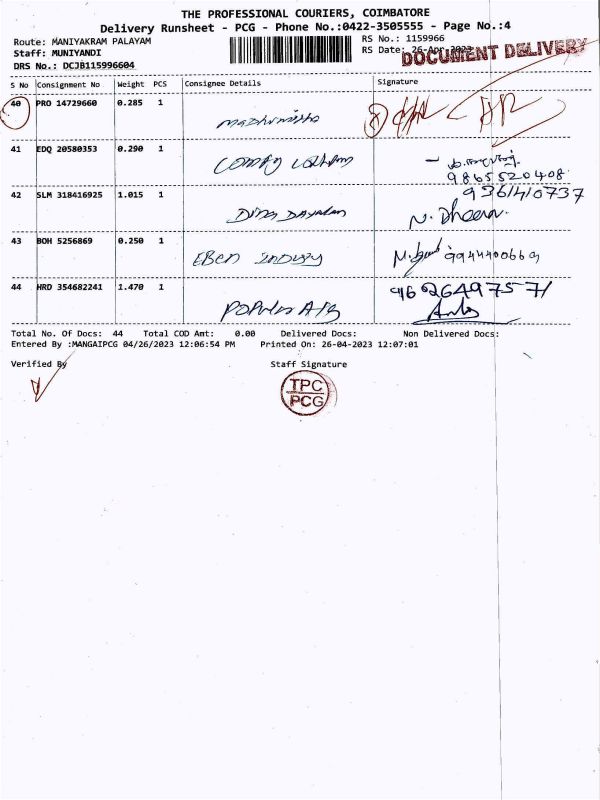 THE PROFESSIONAL COURIERS, COIMBATORE
Delivery Runsheet - PCG - Phone No.:0422-3505555 - Page No.:4
Route: MANIYAKRAM PALAYAM
RS No.: 1159966
Staff: MUNIYANDI
RS Date: 26-Apr-2023
DOCUMENT DELIVERY
DRS No.: DCJB115996604
S No Consignment No Weight PCS Consignee Details Signature
40 PRO 14729660 0.285 1
41 EDQ 20580353 0.290 1
9865520408
42 SLM 318416925 1.015 1 N. Dheena.
9361410737
43 BOH 5256869 0.250 1 EBen 9944400669
44 HRD 354682241 1.470 1 9626497571
Total No. Of Docs: 44 Total COD Amt: 0.00 Delivered Docs: Non Delivered Docs:
Entered By :MANGAIPCG 04/26/2023 12:06:54 PM Printed On: 26-04-2023 12:07:01
Verified By Staff Signature
TPC
PCG